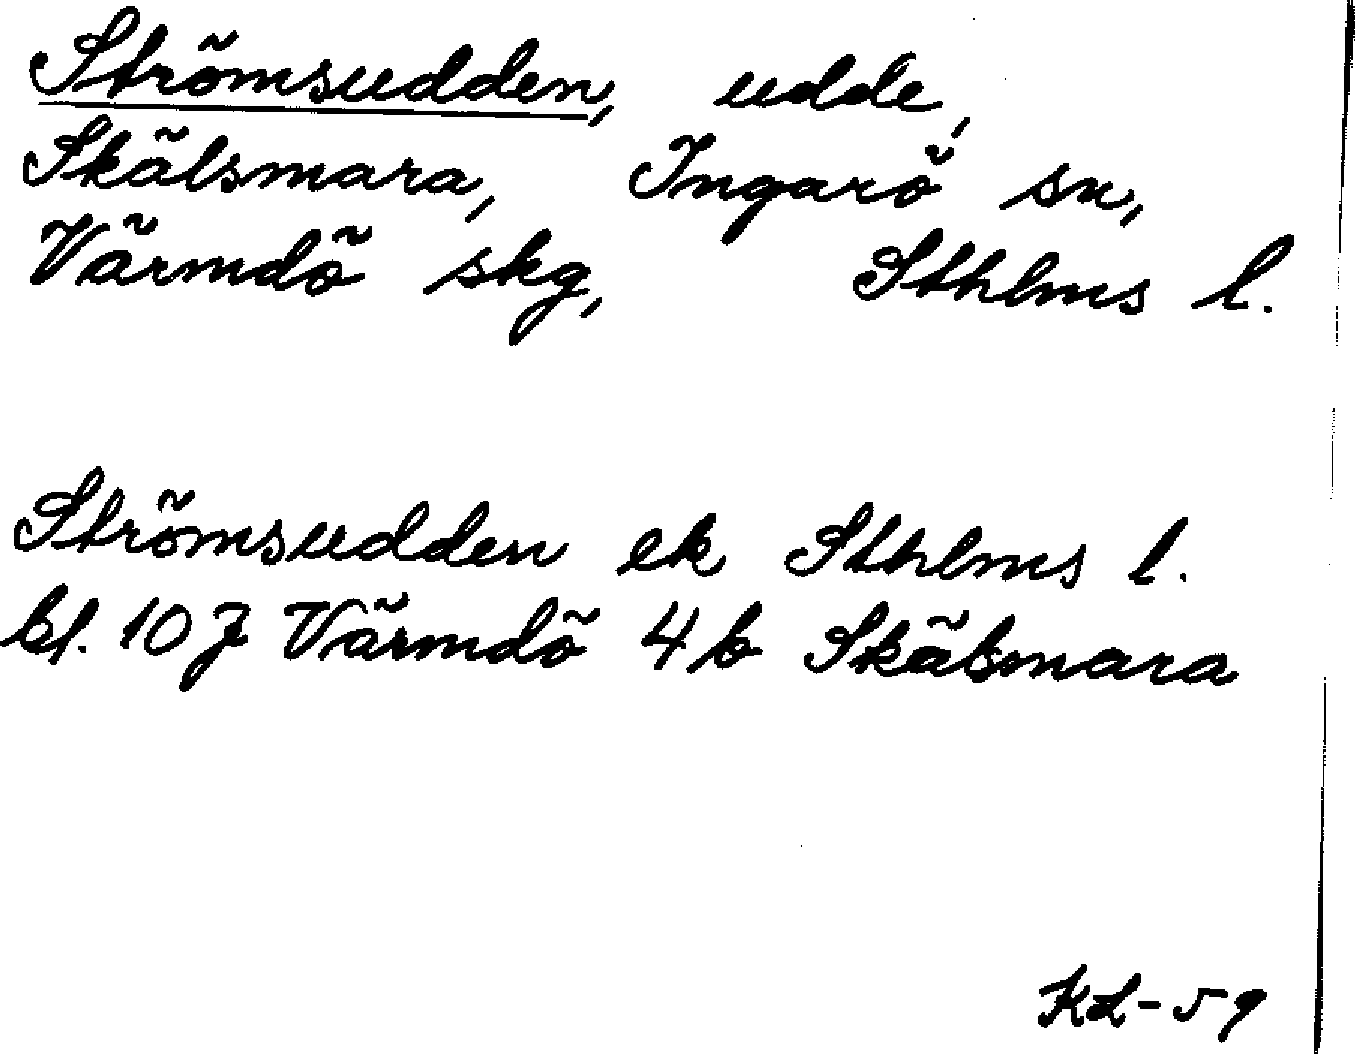 Strömsudden, udde,
Skälsmara, Ingarö sn,
Värmdö skg, Sthlms l.
Strömsudden ek Sthlms l.
bl. 10 J Värmdö 4 b Skälsmara
KL-59